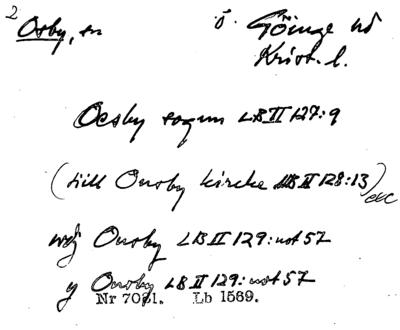 2 Osby, sn ö. Göinge hd
Krist. l.
Oesby sogun LB II 127:9
(till Onsby kircke LB II 128:13) etc
wdj Onsby LB II 129: not 57
y Onsby LB II 129: not 57
Nr 7031. Lb 1569.